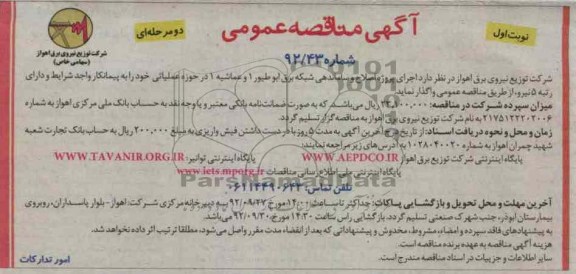 نوبت اول
آگهی مناقصه عمومی
دو مرحله‌ای
شماره ۹۲/۴۳
شرکت توزیع نیروی برق اهواز
(سهامی خاص)
شرکت توزیع نیروی برق اهواز در نظر دارد اجرای پروژه اصلاح و ساماندهی شبکه برق ابو طیور ۱ و عماشیه ۱ در حوزه عملیاتی خود را به پیمانکار واجد شرایط و دارای
رتبه ۵ نیرو، از طریق مناقصه عمومی واگذار نماید.
میزان سپرده شرکت در مناقصه: ریال می‌باشد. که به صورت ضمانت‌نامه بانکی معتبر و یا وجه نقد به حساب بانک ملی مرکزی اهواز به شماره
۲۱۷۵۱۲۲۲۰۲۰۰۶ به نام شرکت توزیع نیروی برق اهواز به مناقصه گزار تسلیم گردد.
زمان و محل و نحوه دریافت اسناد: از تاریخ درج آخرین آگهی به مدت ۵ روز با در دست داشتن فیش واریزی به مبلغ ۲۰۰,۰۰۰ ریال به حساب بانک تجارت شعبه
شهید چمران اهواز به شماره ۱۰۲۸۰۴۰۰۲۰ به آدرس‌های زیر مراجعه نمایند:
پایگاه اینترنتی شرکت توزیع برق اهواز WWW.AEPDCO.IR پایگاه اینترنتی توانیر: WWW.TAVANIR.ORG.IR
پایگاه اینترنتی ملی اطلاع رسانی مناقصات www.iets.mporg.ir
تلفن تماس: ۰۶۱۱۴۴۹۰۶۲۳
آخرین مهلت و محل تحویل و بازگشایی پاکات: حداکثر تا ساعت ۱۴:۰۰ مورخ ۹۲/۰۹/۲۷ به دبیرخانه مرکزی شرکت: اهواز-بلوار پاسداران، روبروی
بیمارستان ابوذر، جنب شهرک صنعتی تسلیم گردد. بازگشایی راس ساعت ۱۴:۳۰ مورخ ۹۲/۰۹/۳۰ می‌باشد.
به پیشنهادهای فاقد سپرده و امضاء، مشروط، مخدوش و پیشنهاداتی که بعد از انقضاء مدت مقرر واصل می‌شود، مطلقا ترتیب اثر داده نخواهد شد.
هزینه آگهی مناقصه به عهده برنده مناقصه است.
سایر اطلاعات و جزییات در اسناد مناقصه مندرج است.
امور تدارکات